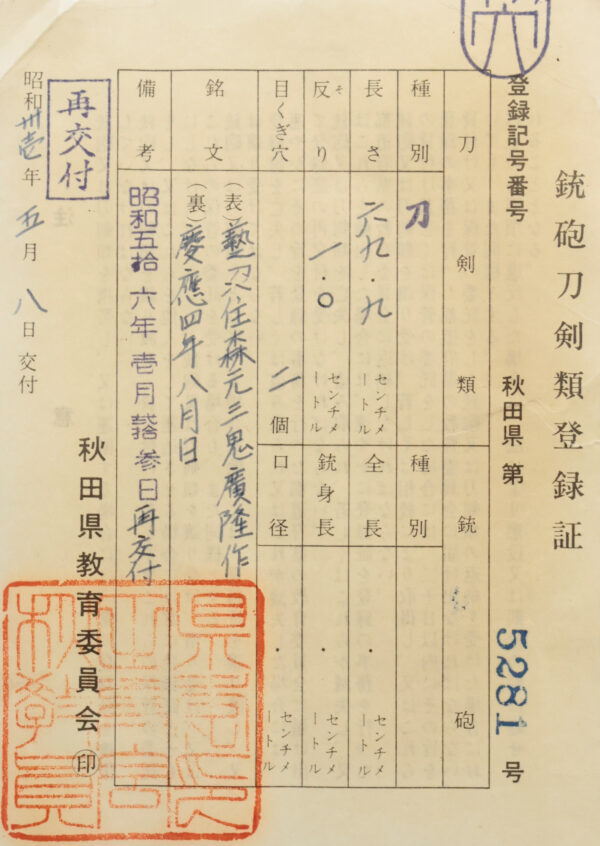 銃砲刀剣類登録証
登録記号番号 秋田県第 5281 号
刀剣類 銃砲
種別 刀 種別
長さ 六九・九 センチメートル 全長 ・ センチメートル
反り そ 一・〇 センチメートル 銃身長 ・ センチメートル
目くぎ穴 二個 口径 ・ センチメートル
銘文 (表)藝州住森元三鬼廣隆作
(裏)慶應四年八月日
備考 昭和五拾六年壱月弐拾参日再交付
秋田県教育委員会 印
再交付
昭和卅壱年五月八日交付